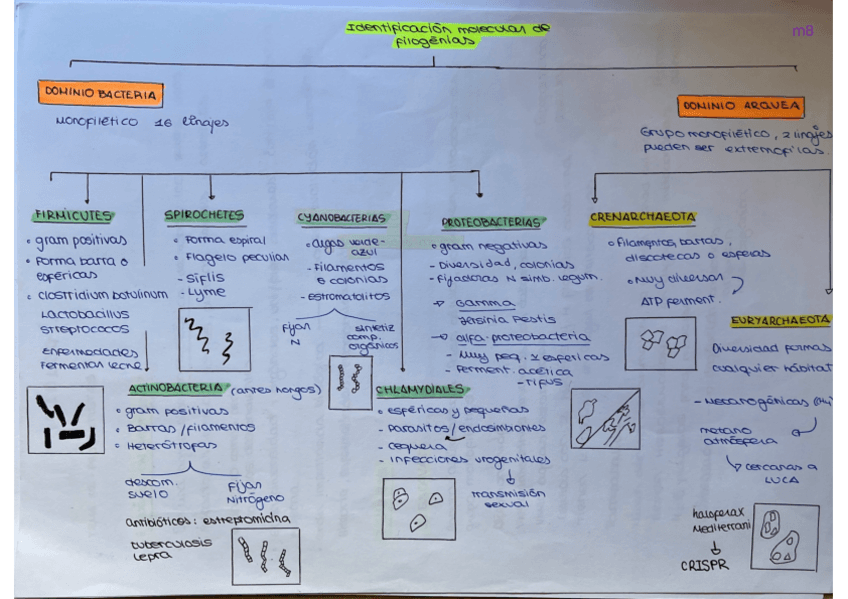 Identificación molecular de
filogénias
m8
DOMINIO BACTERIA
Monofilético 16 linajes
DOMINIO ARQUEA
Grupo monofilético, 2 linajes
pueden ser extremófilas.
FIRMICUTES
• gram positivas
• Forma barra o
esféricas
• Clostridium botulinum
Lactobacillus
Streptococos
Enfermedades
Fermentan leche
SPIROCHETES
• Forma espiral
• Flagelo peculiar
- Sífilis
- Lyme
CYANOBACTERIAS
• algas verde-
azul
- Filamentos
o colonias
- estromatolitos
Fijan
N
sintetiz
comp.
orgánicos
PROTEOBACTERIAS
• gram negativas
- Diversidad, colonias
- Fijadoras N simb. legum.
→ Gamma
Yersinia Pestis
→ alfa-proteobacteria
- Muy peq. y esféricas
- Ferment. acética
- tifus
CRENARCHAEOTA
• Filamentos, barras,
discotecas o esferas
• Muy diversar
ATP ferment.
EURYARCHAEOTA
Diversidad formas
cualquier hábitat
- Metanogénicas (CH4)
metano
atmósfera
cercanas a
LUCA
haloferax
Mediterrani
CRISPR
ACTINOBACTERIA (antes hongos)
• gram positivas
• Barras/filamentos
• Heterótrofas
descom.
suelo
Fijan
Nitrógeno
antibióticos: estreptomicina
tuberculosis
lepra
CHLAMYDIALES
• esféricas y pequeñas
- Parásitos/endosimbiontes
- ceguera
- infecciones urogenitales
transmisión
sexual